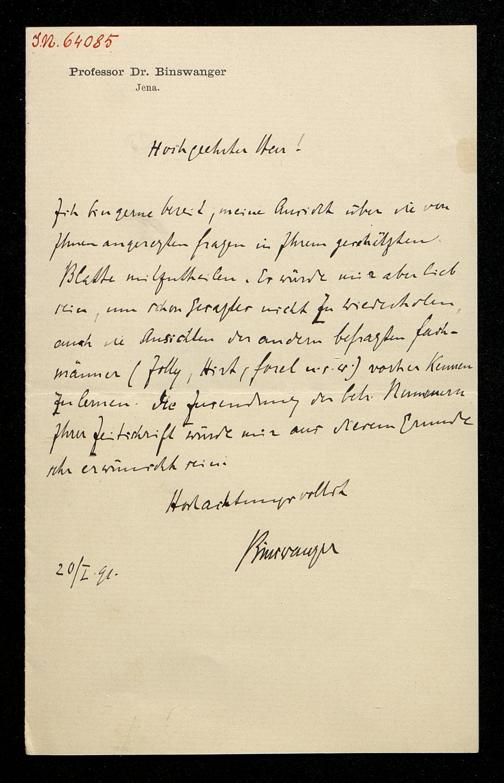 I.N. 64085
Professor Dr. Binswanger
Jena.
Hochgeehrter Herr!
Ich bin gerne bereit, meine Ansicht über die von
Ihnen angeregten Fragen in Ihrem geschätzten
Blatte mitzutheilen. Es würde mir aber lieb
sein, um schon Gesagtes nicht zu wiederholen,
auch die Ansichten der andern befragten Fach-
männer (Jolly, Hirt, Forel u.s.w.) vorher kennen
zu lernen. Die Zusendung der betr. Nummern
Ihrer Zeitschrift würde mir aus diesem Grunde
sehr erwünscht sein.
Hochachtungsvollst
Binswanger
20/I. 91.